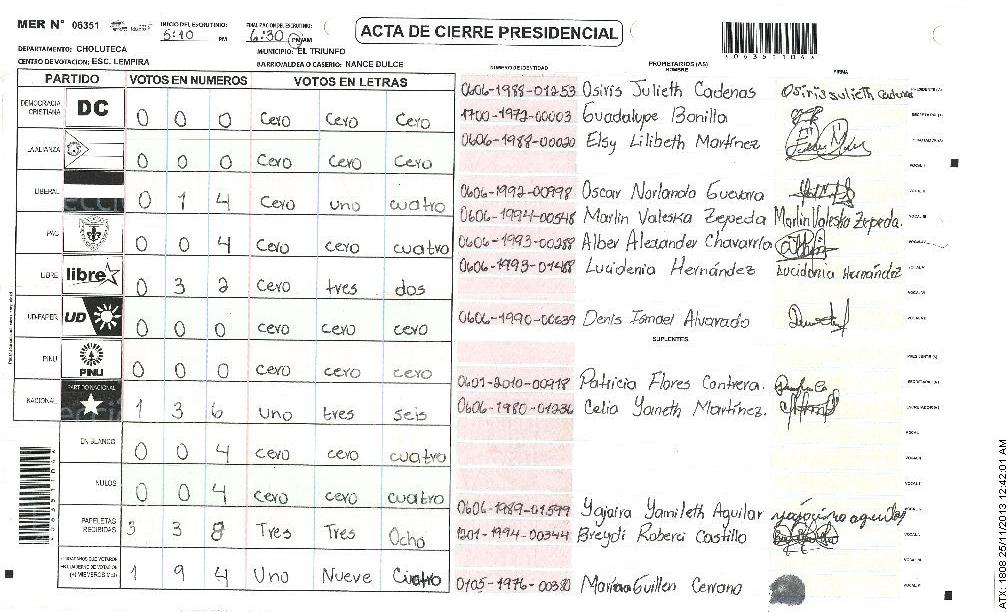 MER N° 06351 INICIO DEL ESCRUTINIO: 5:10 PM FINALIZACION DEL ESCRUTINIO: 6:30 PM/AM ACTA DE CIERRE PRESIDENCIAL
DEPARTAMENTO: CHOLUTECA MUNICIPIO: EL TRIUNFO
CENTRO DE VOTACION: ESC. LEMPIRA BARRIO/ALDEA O CASERIO: NANCE DULCE
PARTIDO VOTOS EN NUMEROS VOTOS EN LETRAS
DEMOCRACIA CRISTIANA DC 0 0 0 Cero Cero Cero
LA ALIANZA 0 0 0 Cero Cero Cero
LIBERAL 0 1 4 Cero uno cuatro
PAC 0 0 4 Cero cero cuatro
LIBRE libre 0 3 2 Cero tres dos
UD-FAPER UD 0 0 0 cero Cero cero
PINU PINU 0 0 0 cero cero cero
NACIONAL PARTIDO NACIONAL 1 3 6 Uno tres seis
EN BLANCO 0 0 4 cero cero cuatro
NULOS 0 0 4 cero cero cuatro
PAPELETAS RECIBIDAS 3 3 8 Tres Tres Ocho
1 9 4 Uno Nueve Cuatro
NUMERO DE IDENTIDAD PROPIETARIOS (AS) NOMBRE FIRMA
0606-1988-01253 Osiris Julieth Cadenas Osiris Julieth Cadenas
1700-1972-00003 Guadalupe Bonilla
0606-1988-00020 Elsy Lilibeth Martínez
0606-1992-00998 Oscar Norlando Guevara
0606-1994-00548 Marlin Valeska Zepeda Marlin Valeska Zepeda.
0606-1993-00288 Alber Alexander Chavarría
0606-1993-01488 Lucidenia Hernández Lucidenia Hernández
0606-1990-00639 Denis Ismael Alvarado
SUPLENTES
0601-2010-00918 Patricia Flores Contrera.
0606-1980-01236 Celia Yaneth Martínez.
0606-1989-01599 Yajaira Yamileth Aguilar
1201-1994-00344 Breydi Roberci Castillo
0105-1976-00380 Guillen Cerrano
ATX: 1808 25/11/2013 12:42:01 AM